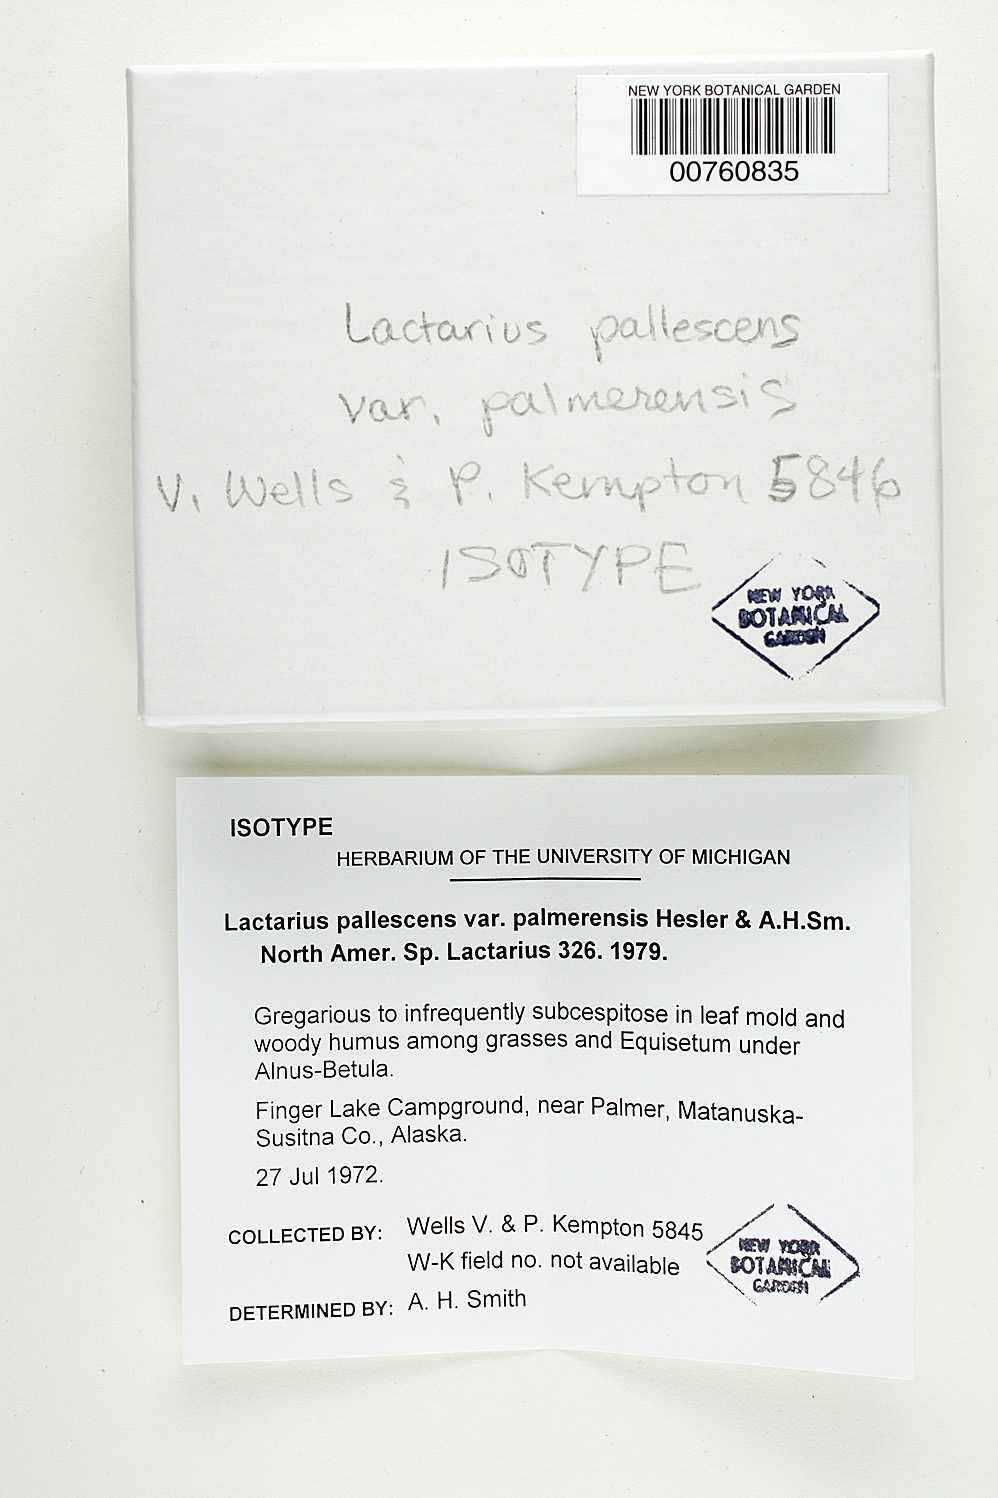 NEW YORK BOTANICAL GARDEN
00760835
Lactarius pallescens
var. palmerensis
V. Wells & P. Kempton 5846
ISOTYPE
NEW YORK
BOTANICAL
GARDEN
ISOTYPE
HERBARIUM OF THE UNIVERSITY OF MICHIGAN
Lactarius pallescens var. palmerensis Hesler & A.H.Sm.
North Amer. Sp. Lactarius 326. 1979.
Gregarious to infrequently subcespitose in leaf mold and
woody humus among grasses and Equisetum under
Alnus-Betula.
Finger Lake Campground, near Palmer, Matanuska-
Susitna Co., Alaska.
27 Jul 1972.
COLLECTED BY: Wells V. & P. Kempton 5845
W-K field no. not available
DETERMINED BY: A. H. Smith
NEW YORK
BOTANICAL
GARDEN